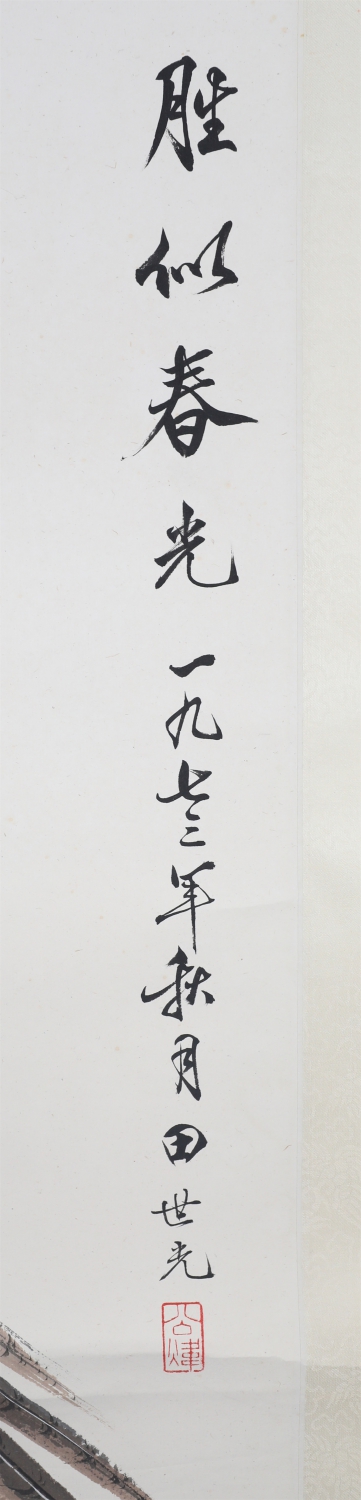 胜似春光一九七三年秋月田世光
公煒